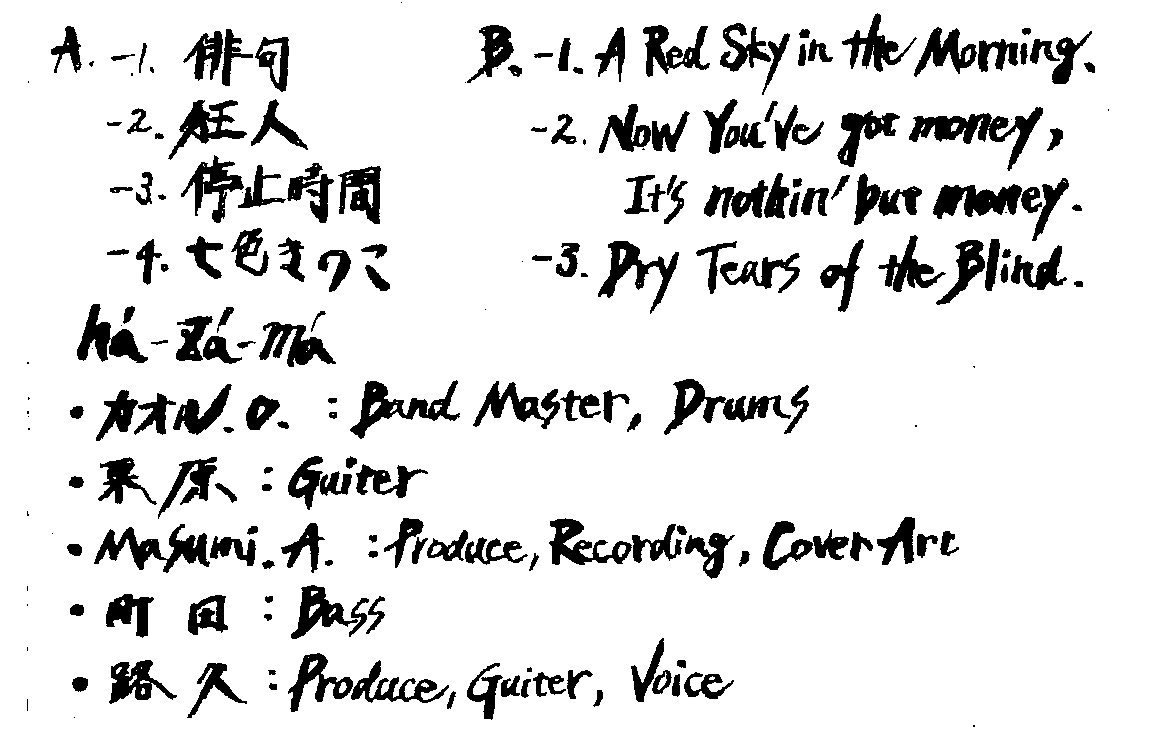 A. -1. 俳句
-2. 狂人
-3. 停止時間
-4. 七色きのこ
B. -1. A Red Sky in the Morning.
-2. Now You've got money,
It's nothin' but money.
-3. Dry Tears of the Blind.
há-zá-má
・カオル.O. : Band Master, Drums
・栗原 : Guiter
・Masumi.A. : Produce, Recording, Cover Art
・町田 : Bass
・路久 : Produce, Guiter, Voice